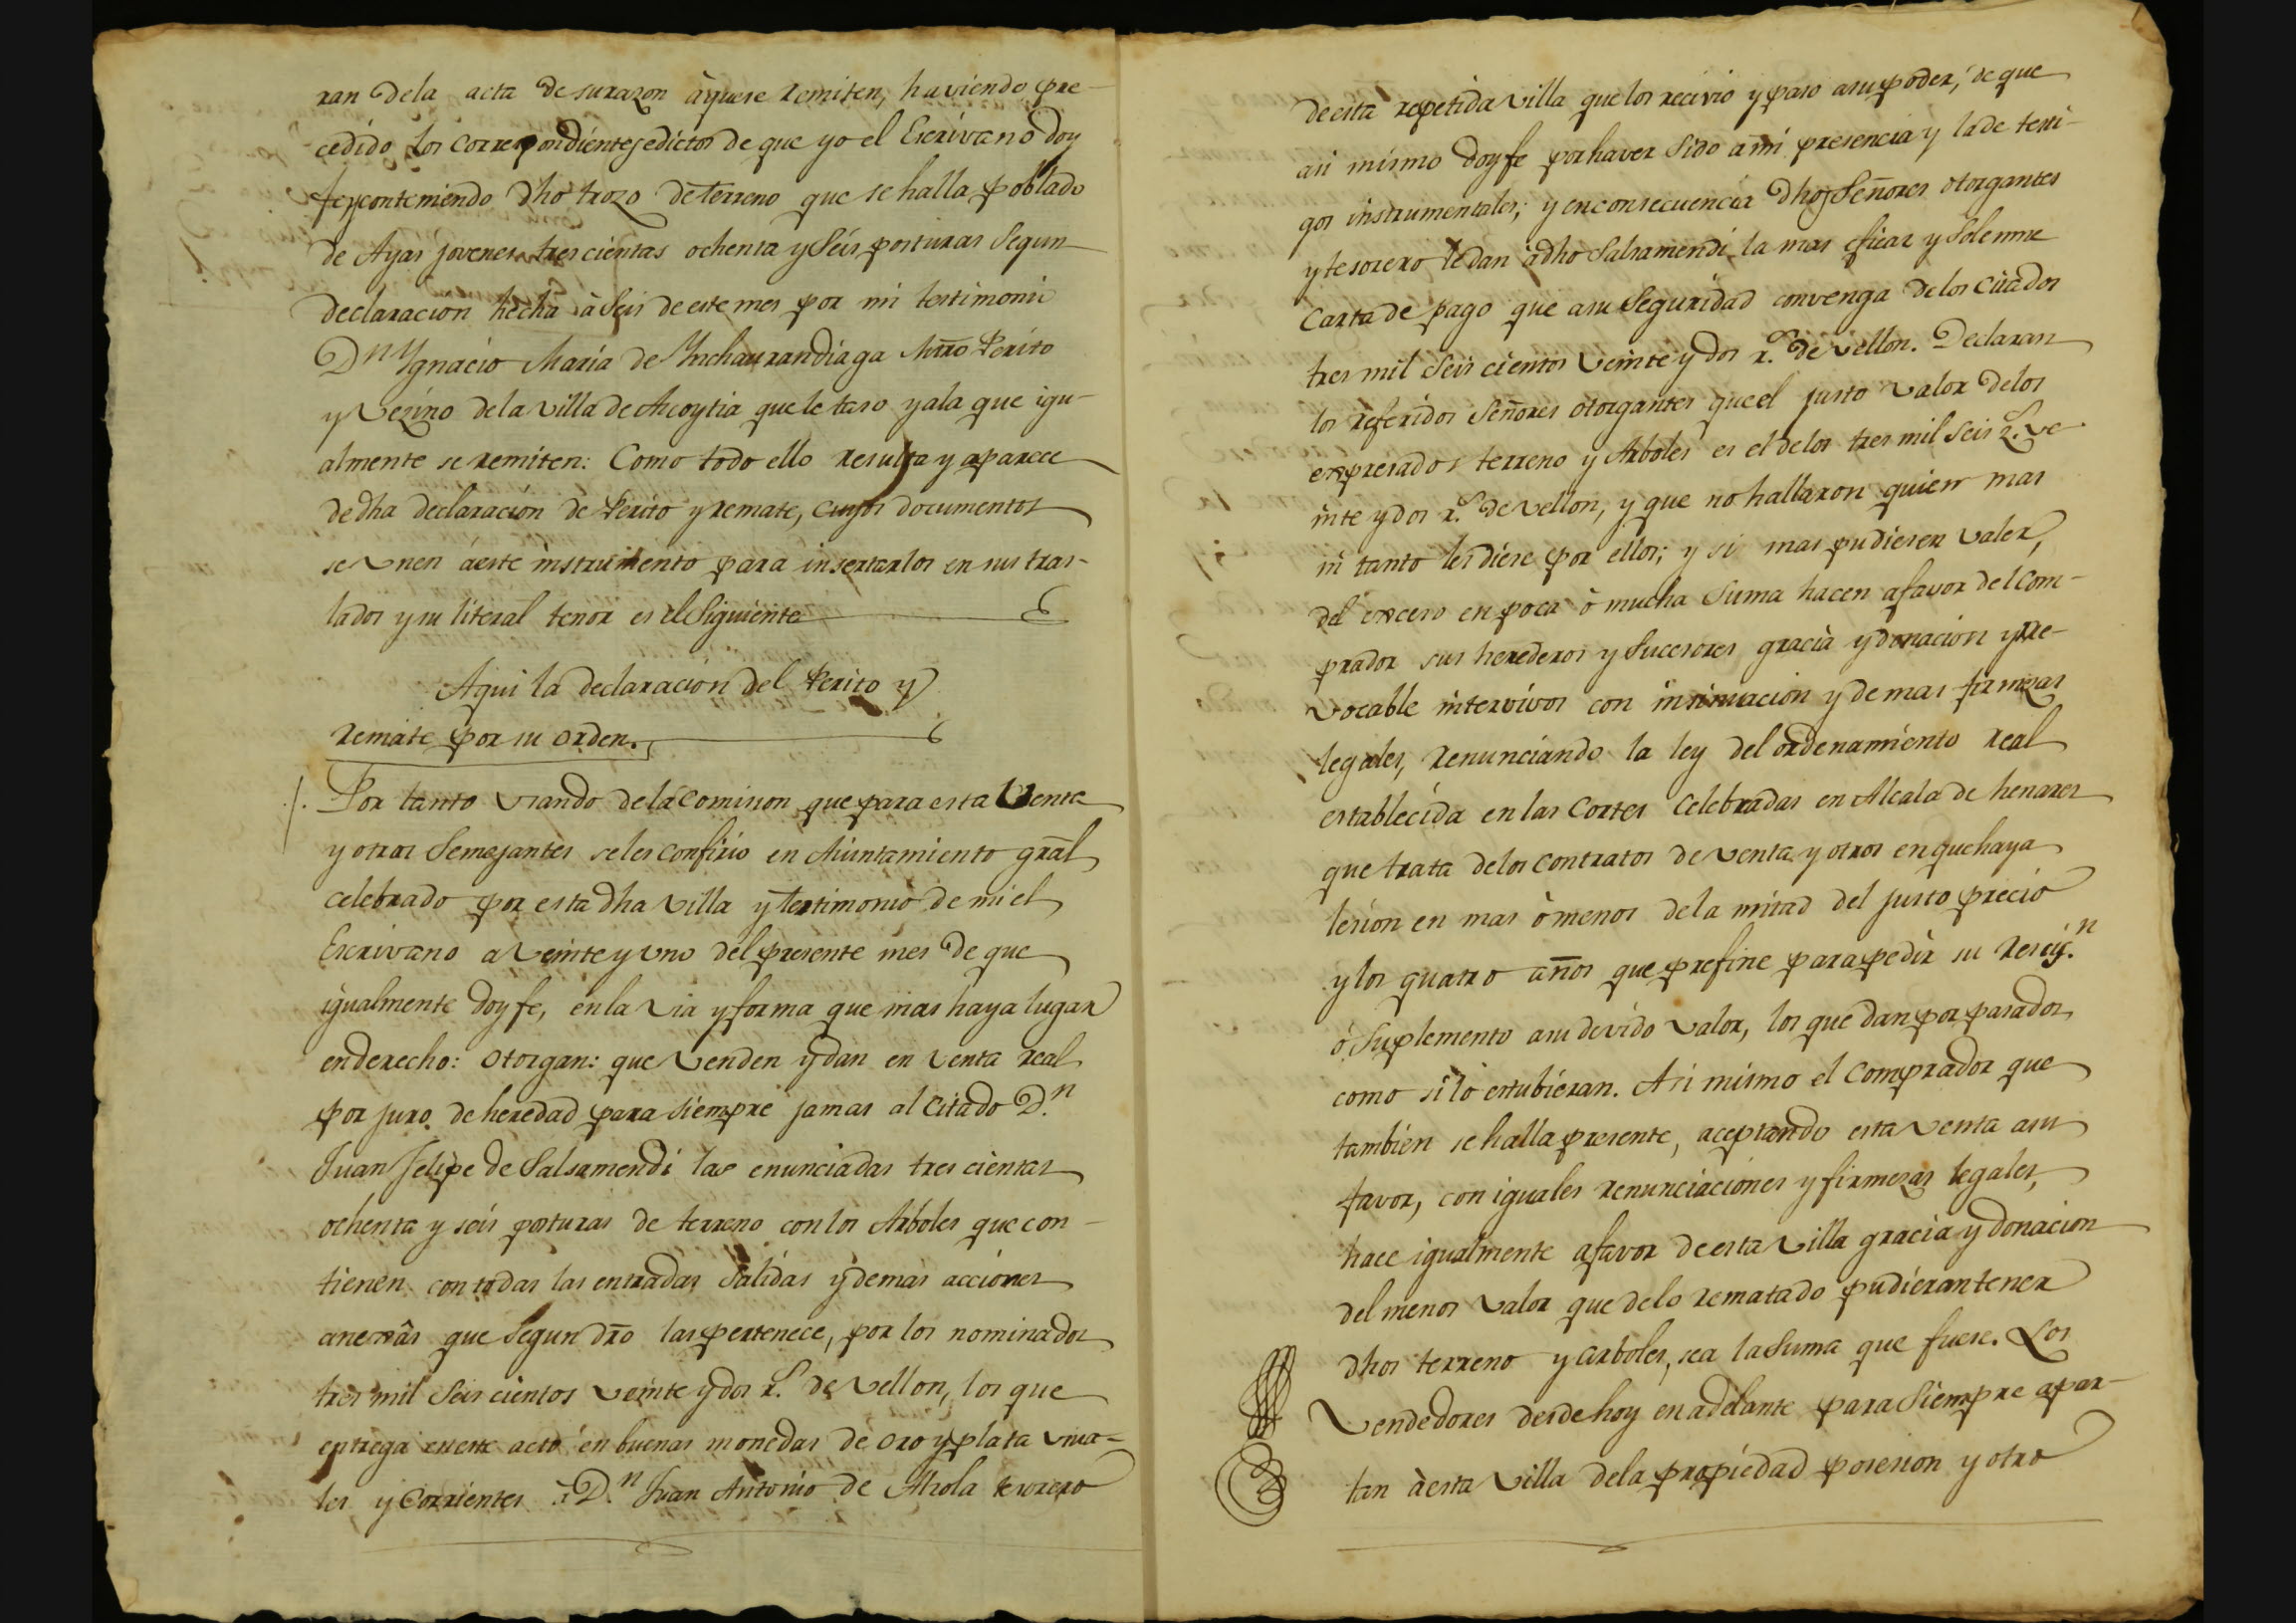 ran dela acta de surazon àquese remiten, haviendo pre-
cedido los correspondientes edictos de que yo el Escrivano doy
fe, y conteniendo dho trozo de terreno que se halla poblado
de Ayas jovenes trescientas ochenta y Seis posturas segun
declaracion hecha à Seis de este mes por mi testimonio
Dn Ygnacio Maria de Ynchaurandiaga Mro Perito
y Vezino dela villa de Azcoytia que le taso y ala que igu-
almente se remiten: Como todo ello resulta y aparece
de dha declaracion de Perito y remate, cuyos documentos
se Vnen áeste instrumento para insertarlos en sus tras-
lados y su literal tenor es el Siguiente
Aqui la declaracion del Perito y
remate por su orden.
Por tanto Vsando dela Comision que para esta Venta
y otras Semejantes seles confirio en Aiuntamiento gral
celebrado por esta dha villa y testimonio de mi el
Escrivano a Veinte y Vno del presente mes de que
igualmente doy fe, en la Via y forma que mas haya lugar
en derecho: Otorgan: que Venden y dan en Venta real
por juro de heredad para siempre jamas al citado D.n
Juan Felipe de Salsamendi las enunciadas trescientas
ochenta y seis posturas de terreno con los Arboles que con-
tienen con todas las entradas Salidas y demas acciones
anexas que Segun dro las pertenece, por los nominados
tres mil Seiscientos veinte y dos r.s de Vellon, los que
entrega en este acto en buenas monedas de Oro y plata Vsua-
les y Corrientes à D.n Juan Antonio de Alzola tesorero
de esta repetida villa que los recivio y paso asu poder, de que
asi mismo doy fe por haver Sido a mi presencia y la de testi-
gos instrumentales; y en consecuencia dhos Señores otorgantes
y tesorero le dan à dho Salsamendi la mas eficaz y Solemne
Carta de pago que asu Seguridad convenga de los citados
tres mil Seis cientos Veinte y dos r.s de vellon. Declaran
los referidos Señores otorgantes que el justo Valor delos
expresados terreno y Arboles es el delos tres mil Seis 2.s ve
inte y dos r.s de Vellon, y que no hallaron quien mas
ni tanto les diese por ellos; y si mas pudieren Valer,
del exceso en poca ò mucha Suma hacen afavor del Com-
prador sus herederos y Sucesores gracia y donacion yrre-
vocable intervivos con insinuacion y demas firmezas
legales, renunciando la ley del ordenamiento real
establecida en las Cortes Celebradas en Alcala de henares
que trata delos contratos de Venta y otros en que haya
lesion en mas ò menos dela mitad del justo precio
y los quatro años que prefine para pedir su rescis.n
ò Suplemento asu devido Valor, los que dan por pasados
como si lo estubieran. Asi mismo el Comprador que
tambien se halla presente, aceptando esta Venta asu
favor, con iguales renunciaciones y firmezas legales,
hace igualmente afavor de esta Villa gracia y donacion
del menor Valor que delo rematado pudieran tener
dhos terreno y arboles, sea la Suma que fuere. Los
Vendedores desde hoy en adelante para Siempre apar-
tan à esta Villa dela propiedad posesion y otro